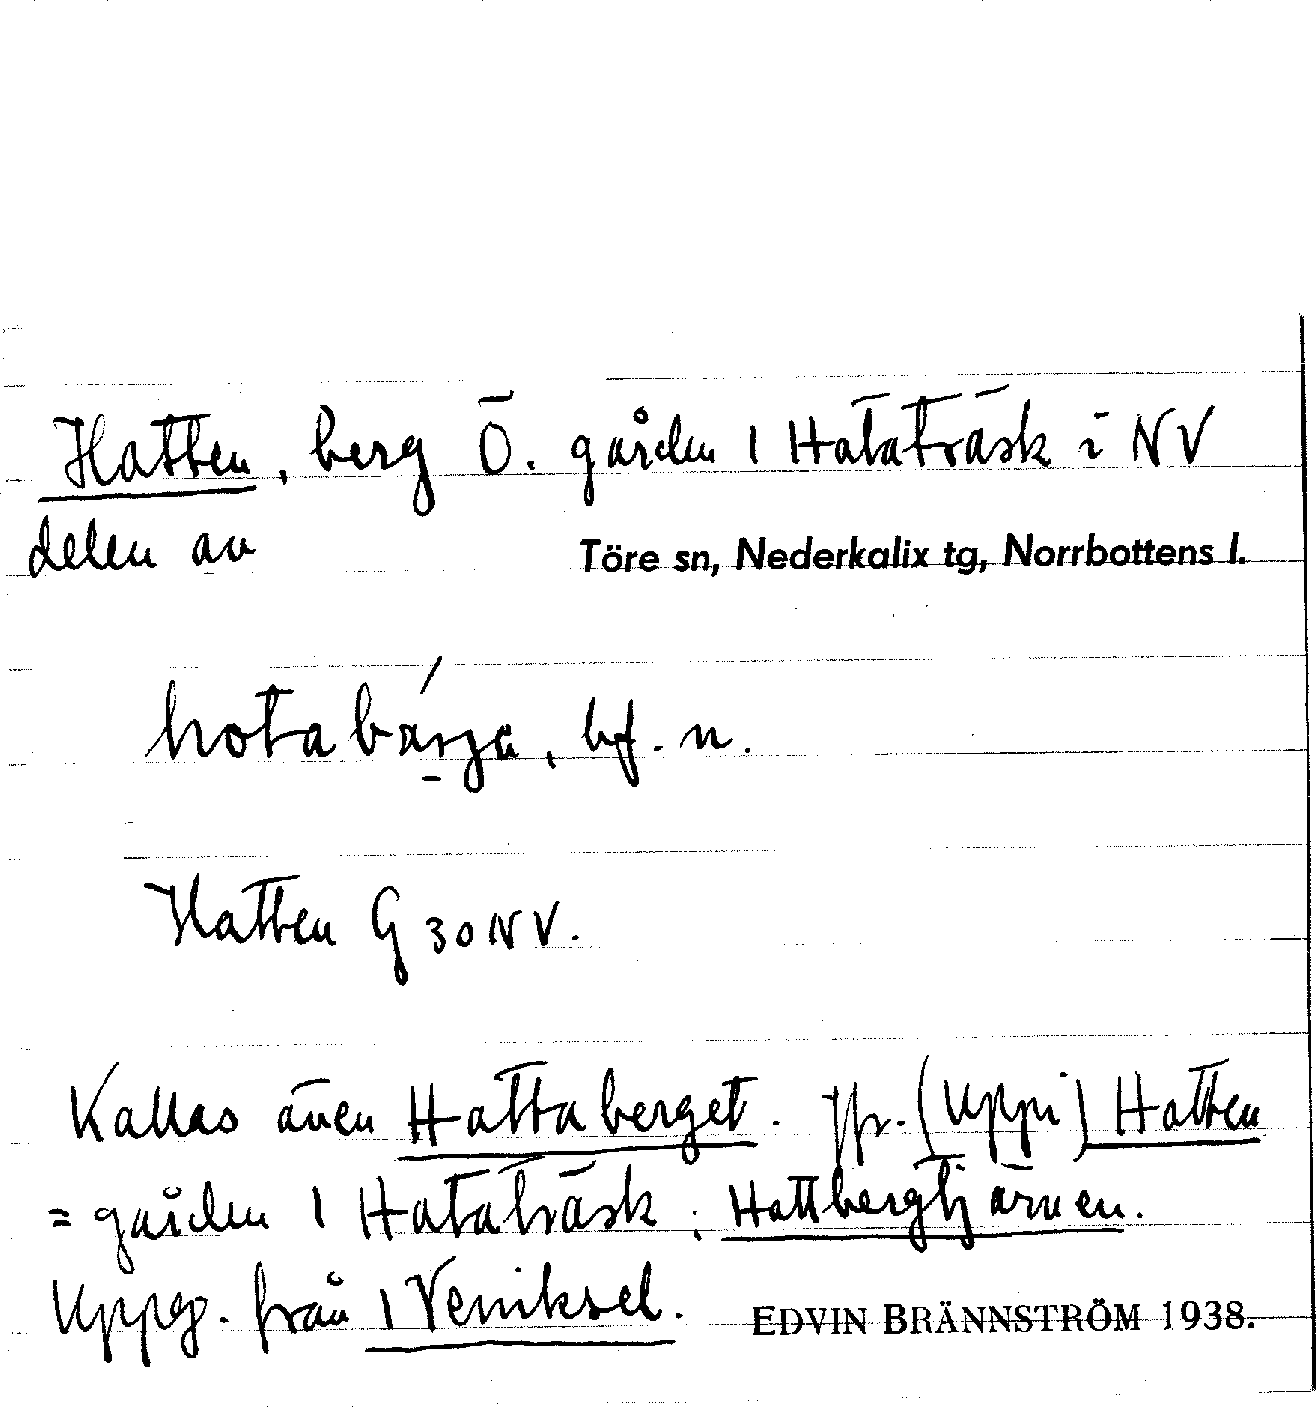 Hatten, berg Ö. gården 1 Hataträsk i NV
delen av Töre sn, Nederkalix tg, Norrbottens l.
hotabárga, bf. n.
Hatten G 30 NV.
Kallas även Hattaberget. Jfr. (Uppi) Hatten
= gården 1 Hataträsk; Hattbergtjärnen.
Uppg. från 1 Veniksel. EDVIN BRÄNNSTRÖM 1938.